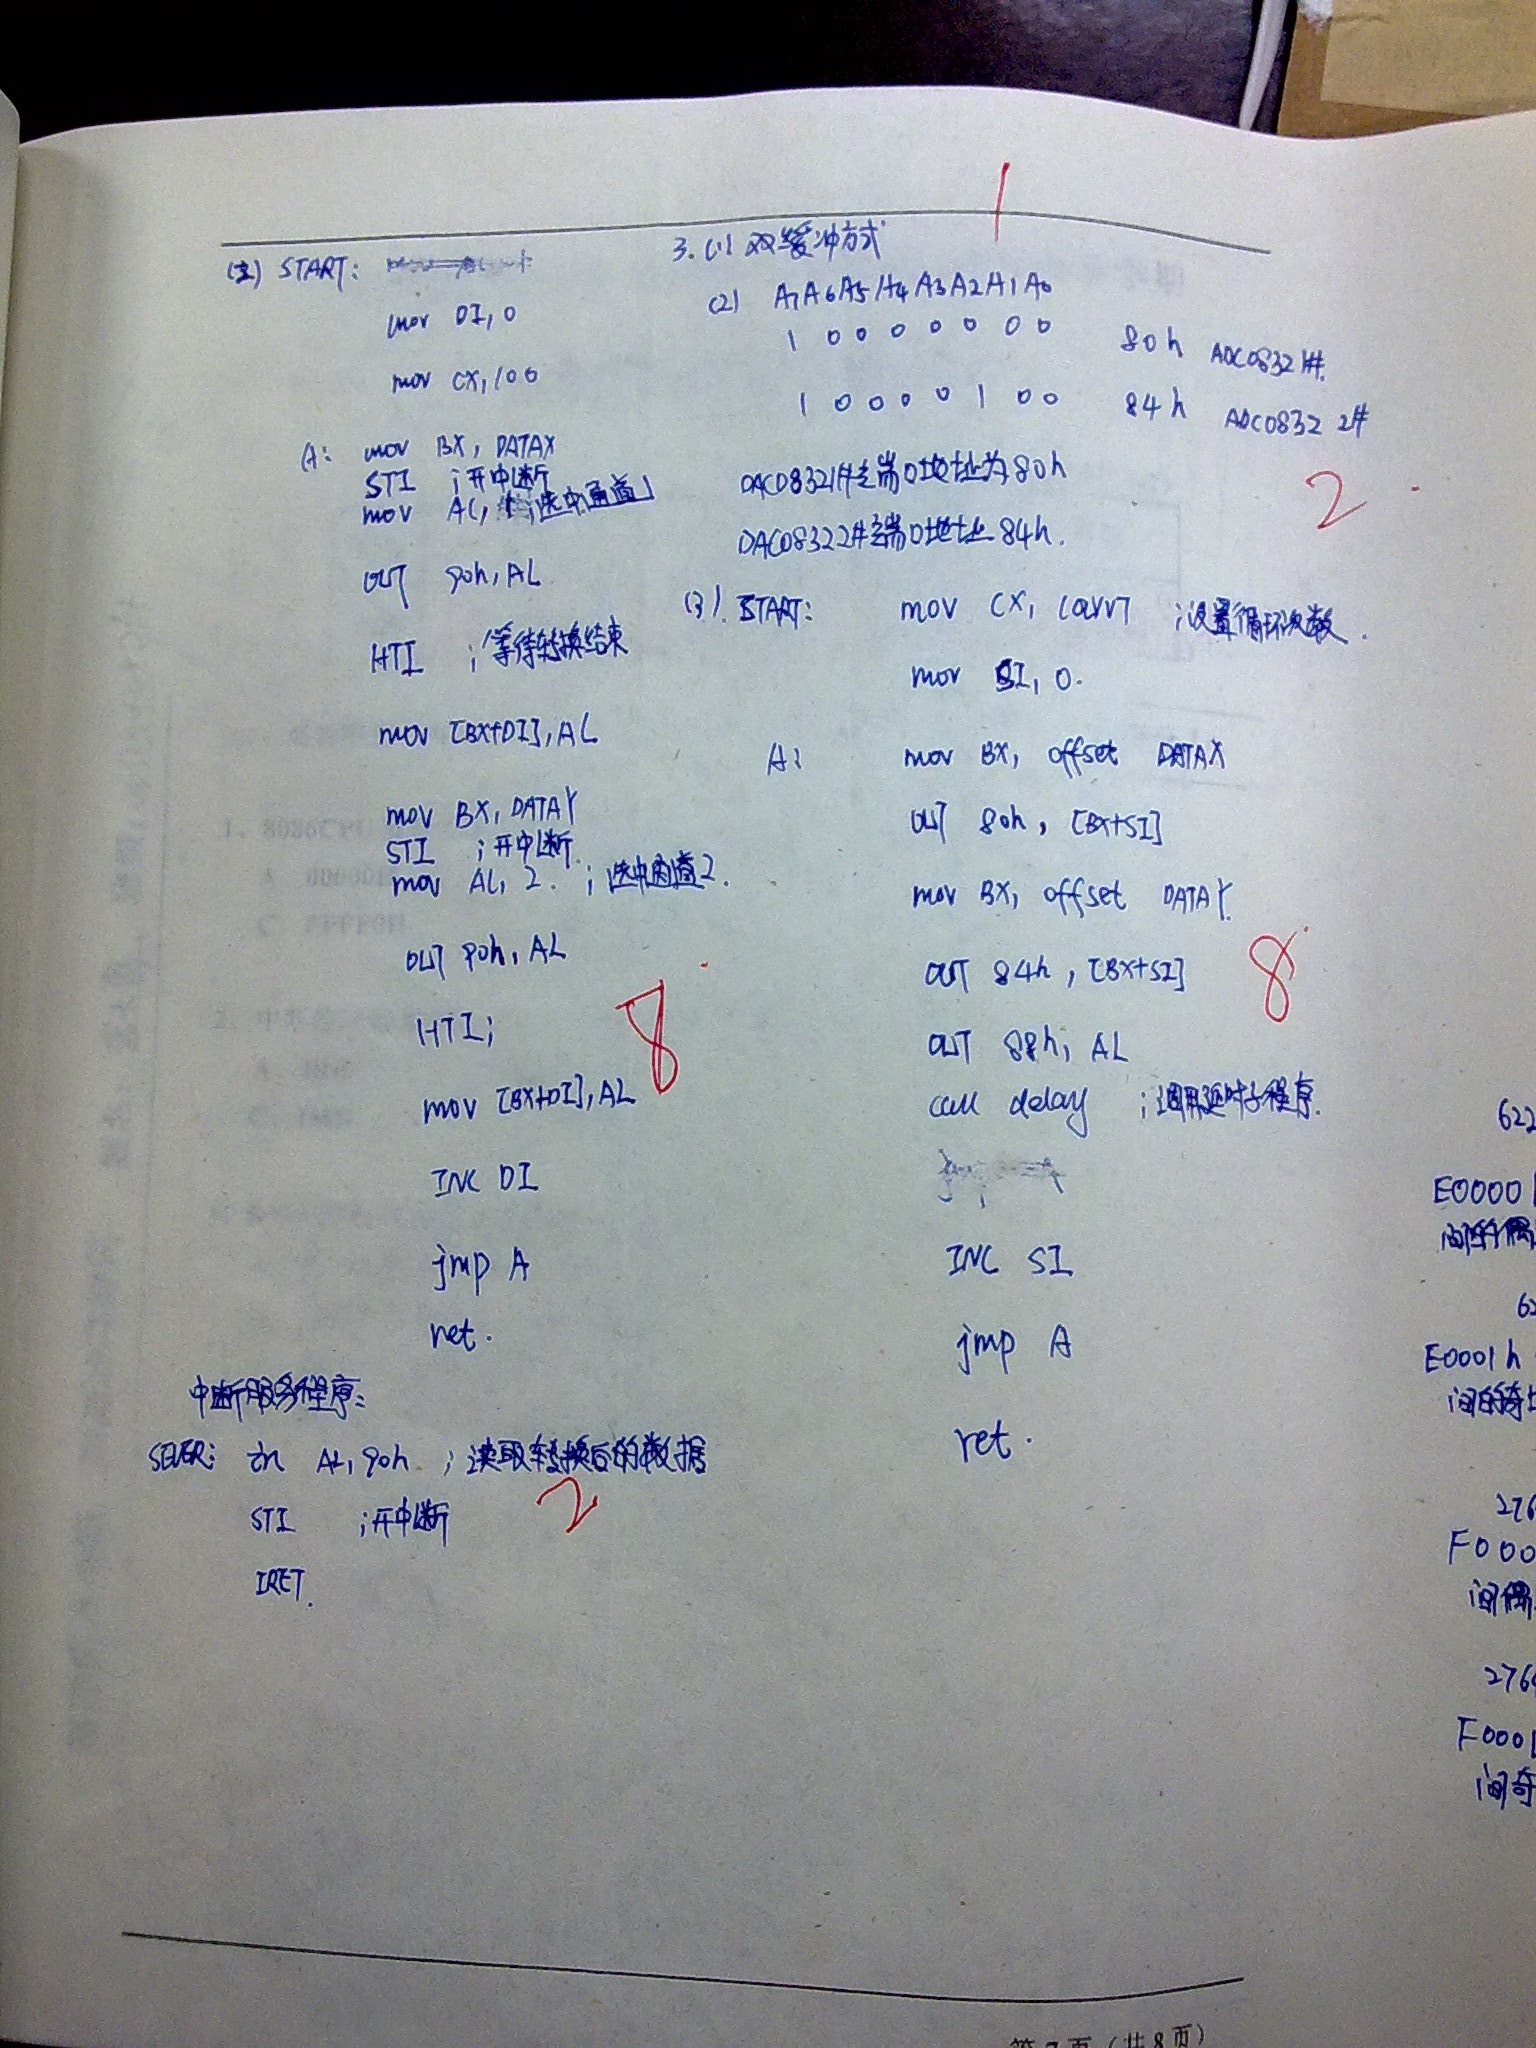 START:
mov DI, 0
mov CX, 100
A: mov BX, DATAX
STI ;开中断
mov AL, 1 ;选中通道1
OUT 90h, AL
HTI ;等待转换结束
mov [BX+DI], AL
mov BX, DATAY
STI ;开中断
mov AL, 2. ;选中通道2.
OUT 90h, AL
HTI;
mov [BX+DI], AL
INC DI
jmp A
ret.
8
中断服务程序:
SEVER: in AL, 90h ;读取转换后的数据
STI ;开中断
IRET.
2
1
3. (1) 双缓冲方式
(2) A7 A6 A5 A4 A3 A2 A1 A0
1 0 0 0 0 0 0 0 80h ADC0832 1#.
1 0 0 0 0 1 0 0 84h ADC0832 2#
DAC0832 1#之端口地址为80h
DAC0832 2#之端口地址 84h.
2
(3). START: mov CX, count ;设置循环次数.
mov SI, 0.
A: mov BX, offset DATAX
OUT 80h, [BX+SI]
mov BX, offset DATAY.
OUT 84h, [BX+SI]
OUT 88h, AL
call delay ;调用延时子程序.
INC SI
jmp A
ret.
8
622
E0000
间
62
E0001h
间
276
F000
间偶
276
F0001
间奇
1. 8086CPU
第7页(共8页)